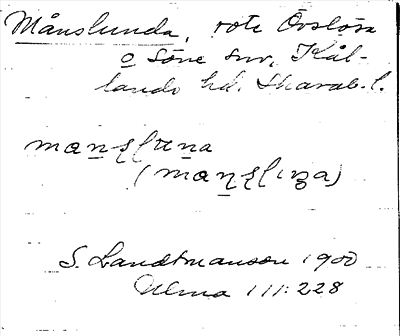 Månslunda, rote Örslösa
o Söne snr, Kål-
lands hd. Skarab. l.
mans̨luna
(mans̨l
S. Landtmanson 1900
Ulma 111:228